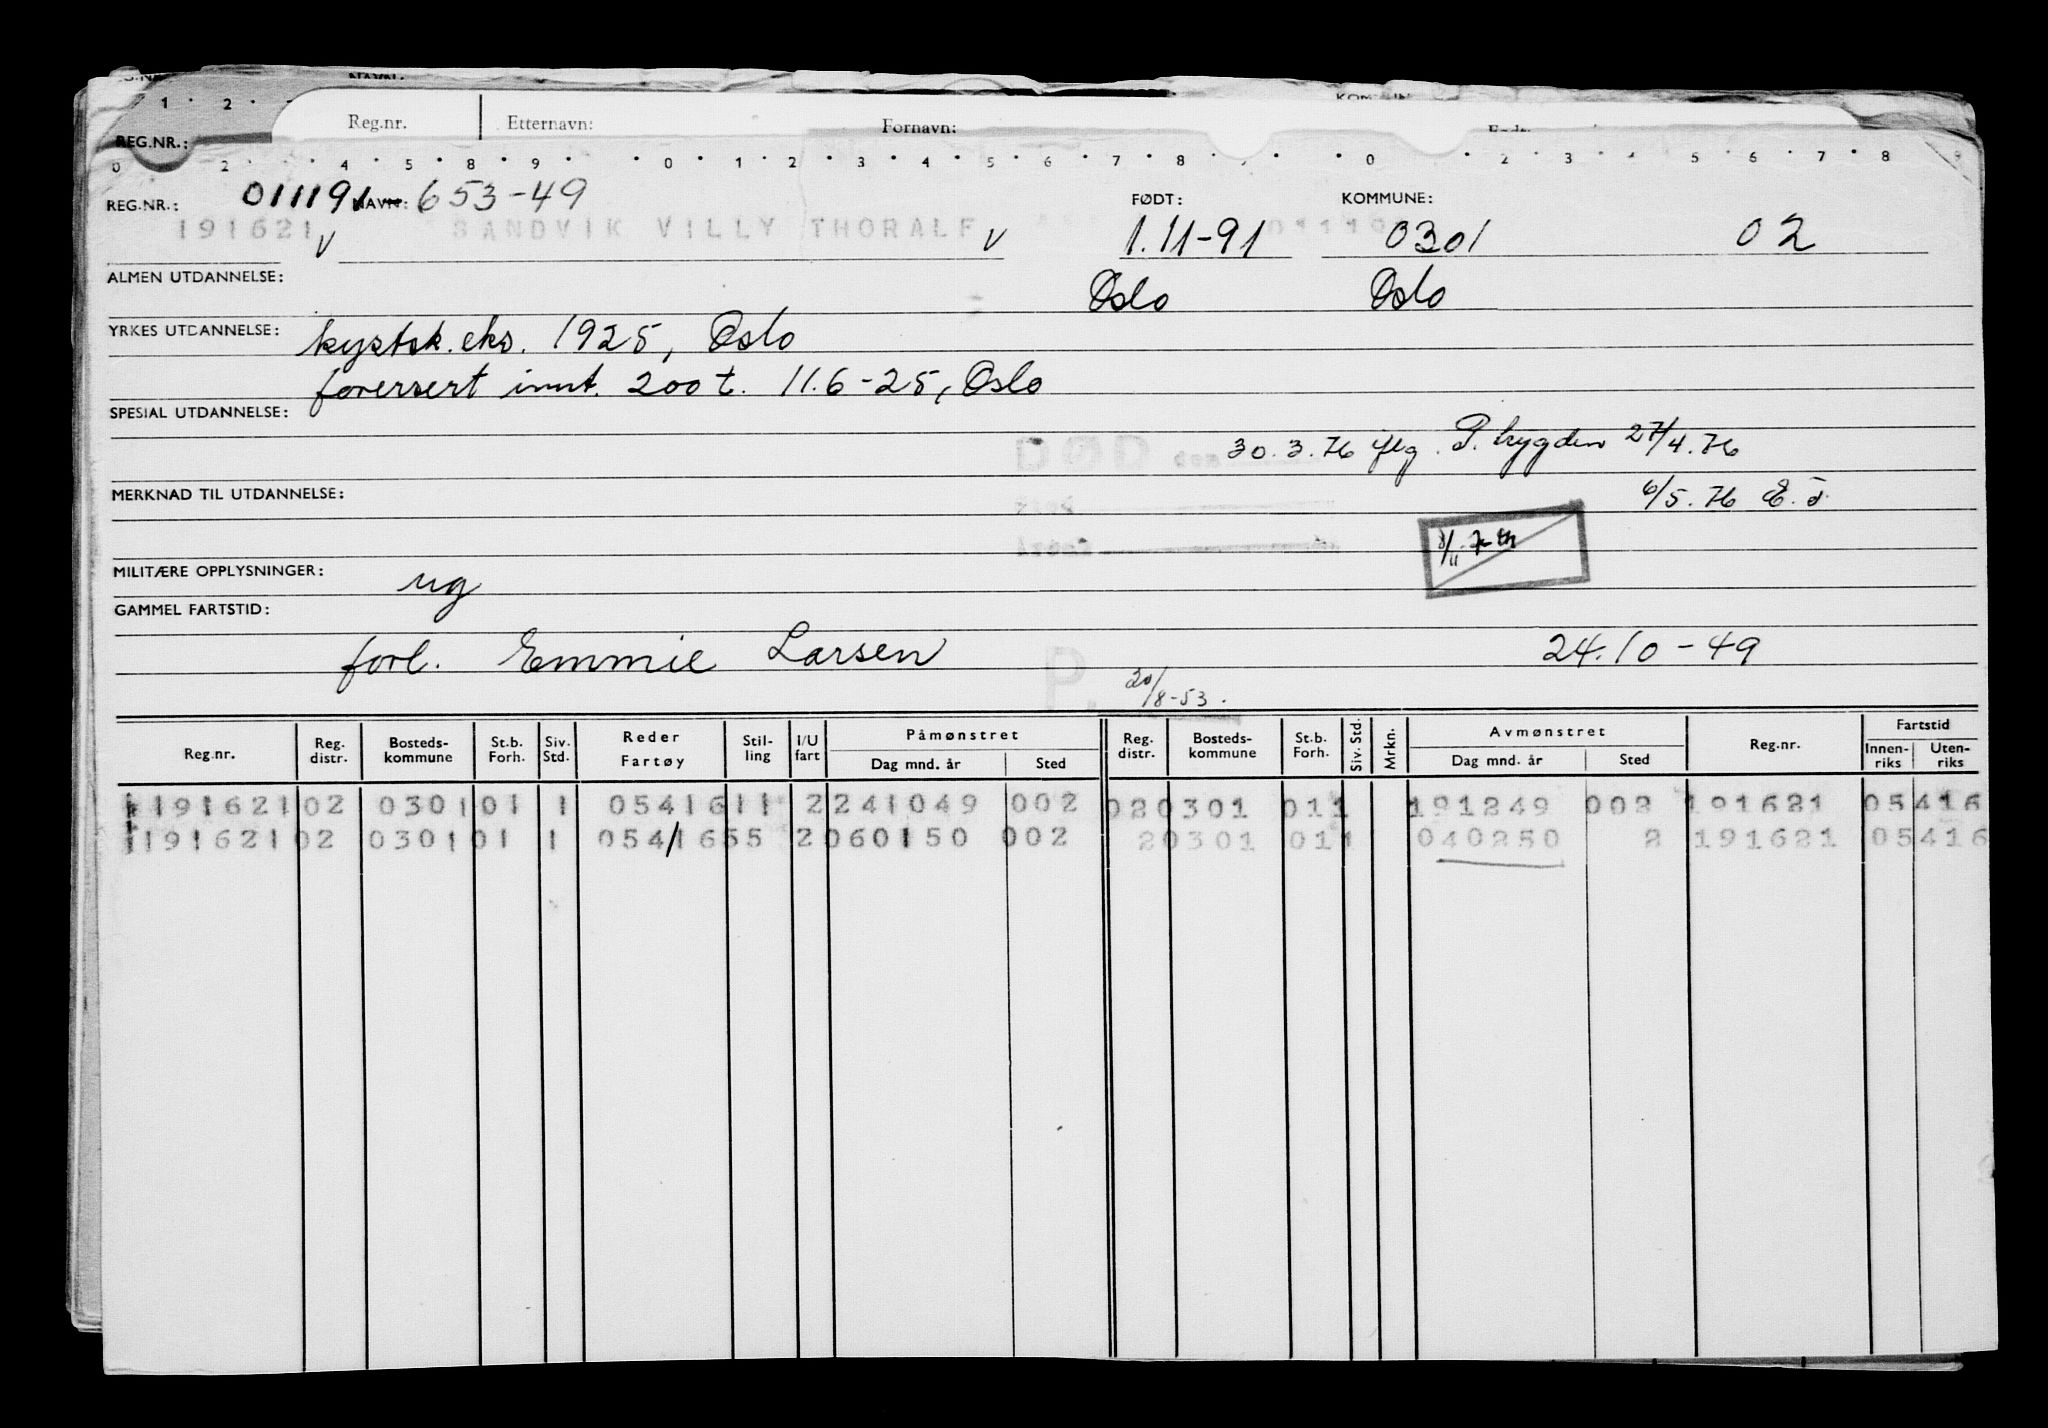 1 · 2 ·
Reg.nr. Etternavn: Fornavn:
REG.NR.:
0 2 · 4 · 5 · 8 · 9 · · 0 · 1 · 2 · 3 · 4 · 5 · 6 · 7 · 8 · · 0 2 · 3 · 5 · 6 · 7 · 8
REG.NR.: 011191 NAVN: 653-49 FØDT: KOMMUNE:
191621 V SANDVIK VILLY THORALF V 1.11-91 0301 02
ALMEN UTDANNELSE: Oslo Oslo
YRKES UTDANNELSE: kystsk. eks. 1925, Oslo
forersert innt. 200 t. 11.6-25, Oslo
SPESIAL UTDANNELSE:
DØD 30.3.76 iflg. P. trygden 27/4.76
MERKNAD TIL UTDANNELSE: 6/5.76 E.J.
MILITÆRE OPPLYSNINGER: ug
GAMMEL FARTSTID:
forl. Emmie Larsen 24.10-49
P. 20/8-53.
Reg.nr. Reg. distr. Bosteds-kommune St.b. Forh. Siv. Std. Reder Fartøy Stil-ling I/U fart Påmønstret Dag mnd. år Sted Reg. distr. Bosteds-kommune St.b. Forh. Siv. Std. Mrkn. Avmønstret Dag mnd. år Sted Reg.nr. Fartstid Innen-riks Uten-riks
191621 02 0301 01 1 05416 11 2 241049 002 02 0301 01 1 191249 002 191621 05416
191621 02 0301 01 1 05416 55 2 060150 002 2 0301 01 1 040250 2 191621 05416